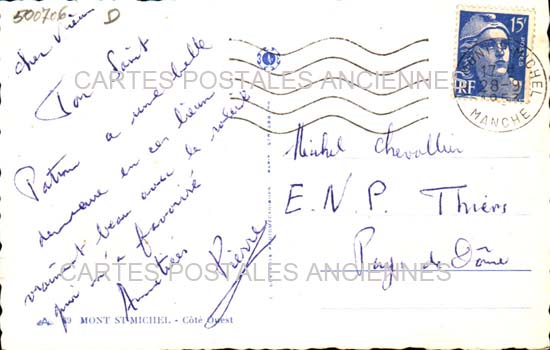 500706 D
Cher vieux
Ton Saint
Patron a une belle
demeure en ces lieux
vraiment beau avec le soleil
qui m'a favorisé
Amitiés
Pierre
49 MONT ST-MICHEL - Côté Ouest
15F
POSTES
RF
MICHEL
17
28-9
MANCHE
Michel Chevallier
E.N.P. Thiers
Puy de Dôme
CARTES POSTALES ANCIENNES
CARTES POSTALES ANCIENNES